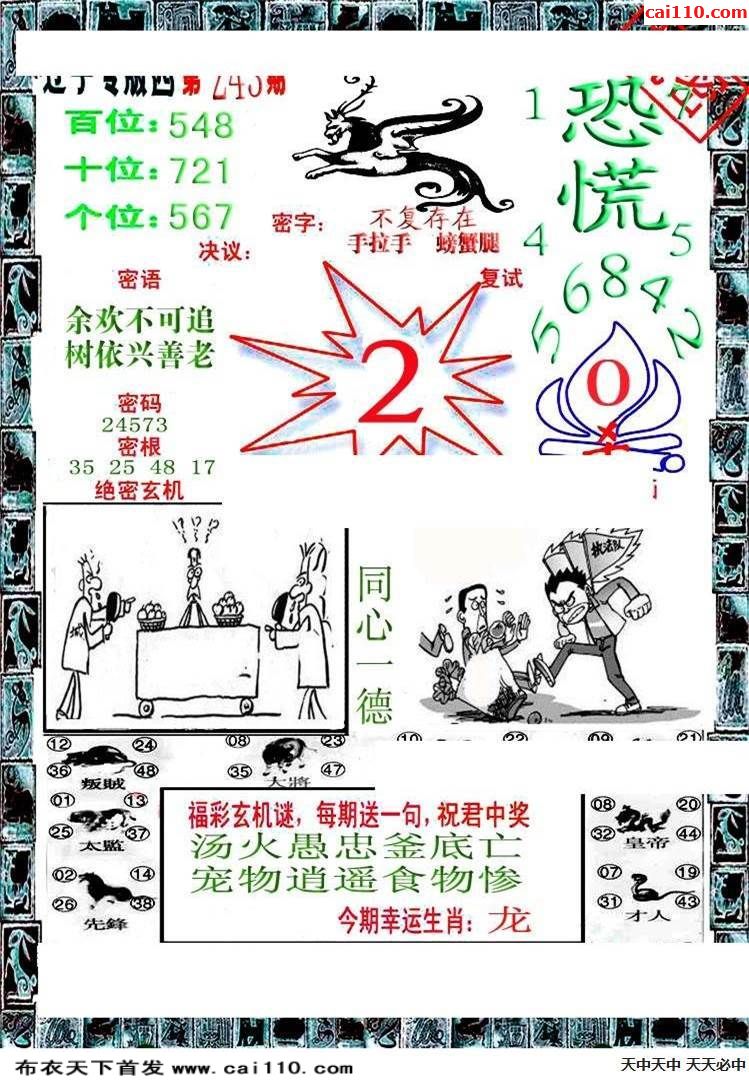 cai110.com
辽宁专版四第243期
百位：548
十位：721
个位：567
密字：不复存在
手拉手 螃蟹腿
决议：
复试
1 恐 7
慌
4 5
5 6 8 4 2
密语
余欢不可追
树依兴善老
2
0
密码
24573
密根
35 25 48 17
绝密玄机
!?!?!?
执法队
同心一德
12 24
36 48
叛贼
08 23
35 47
大将
10 22
09 21
01 13
25 37
太监
02 14
26 38
先鋒
福彩玄机谜，每期送一句，祝君中奖
汤火愚忠釜底亡
宠物逍遥食物惨
今期幸运生肖：龙
08 20
32 44
皇帝
07 19
31 43
才人
布衣天下首发 www.cai110.com
天中天中 天天必中